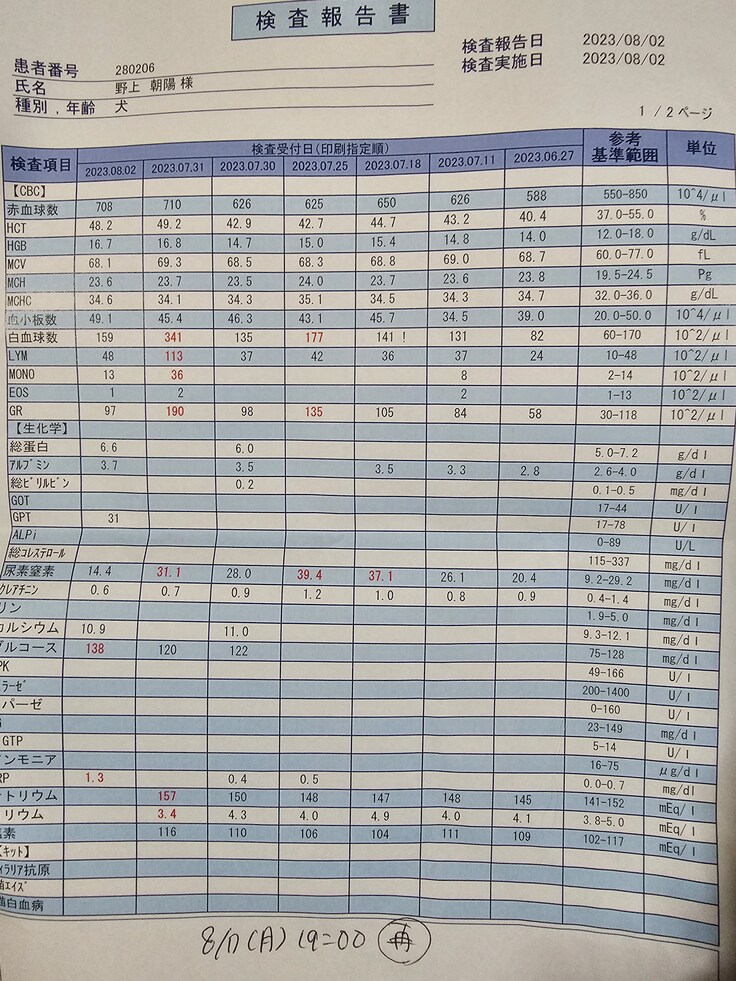 検査報告書
検査報告日 2023/08/02
検査実施日 2023/08/02
患者番号 280206
氏名 野上 朝陽 様
種別，年齢 犬
1 / 2 ページ
検査項目 検査受付日(印刷指定順) 参考基準範囲 単位
2023.08.02 2023.07.31 2023.07.30 2023.07.25 2023.07.18 2023.07.11 2023.06.27
【CBC】
赤血球数 708 710 626 625 650 626 588 550-850 10^4/μl
HCT 48.2 49.2 42.9 42.7 44.7 43.2 40.4 37.0-55.0 %
HGB 16.7 16.8 14.7 15.0 15.4 14.8 14.0 12.0-18.0 g/dL
MCV 68.1 69.3 68.5 68.3 68.8 69.0 68.7 60.0-77.0 fL
MCH 23.6 23.7 23.5 24.0 23.7 23.6 23.8 19.5-24.5 Pg
MCHC 34.6 34.1 34.3 35.1 34.5 34.3 34.7 32.0-36.0 g/dL
血小板数 49.1 45.4 46.3 43.1 45.7 34.5 39.0 20.0-50.0 10^4/μl
白血球数 159 341 135 177 141 ! 131 82 60-170 10^2/μl
LYM 48 113 37 42 36 37 24 10-48 10^2/μl
MONO 13 36 8 2-14 10^2/μl
EOS 1 2 2 1-13 10^2/μl
GR 97 190 98 135 105 84 58 30-118 10^2/μl
【生化学】
総蛋白 6.6 6.0 5.0-7.2 g/dl
アルブミン 3.7 3.5 3.5 3.3 2.8 2.6-4.0 g/dl
総ビリルビン 0.2 0.1-0.5 mg/dl
GOT 17-44 U/l
GPT 31 17-78 U/l
ALPi 0-89 U/L
総コレステロール 115-337 mg/dl
尿素窒素 14.4 31.1 28.0 39.4 37.1 26.1 20.4 9.2-29.2 mg/dl
クレアチニン 0.6 0.7 0.9 1.2 1.0 0.8 0.9 0.4-1.4 mg/dl
リン 1.9-5.0 mg/dl
カルシウム 10.9 11.0 9.3-12.1 mg/dl
グルコース 138 120 122 75-128 mg/dl
PK 49-166 U/l
ラーゼ 200-1400 U/l
パーゼ 0-160 U/l
23-149 mg/dl
GTP 5-14 U/l
ンモニア 16-75 μg/dl
RP 1.3 0.4 0.5 0.0-0.7 mg/dl
トリウム 157 150 148 147 148 145 141-152 mEq/l
リウム 3.4 4.3 4.0 4.9 4.0 4.1 3.8-5.0 mEq/l
素 116 110 106 104 111 109 102-117 mEq/l
【キット】
ィラリア抗原
エイズ
白血病
(月) 19=00 再